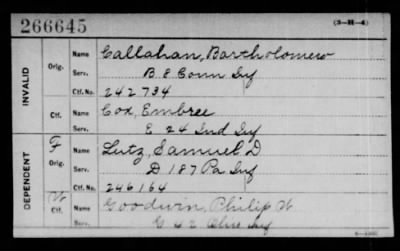 266645 (3-H-4)
INVALID
Orig.
Name Callahan, Bartholomew
Serv. B 8 Conn Inf
Ctf. No. 242734
Ctf.
Name Cox, Embree
Serv. E 24 Ind Inf
DEPENDENT
F
Orig.
Name Lutz, Samuel D
Serv. D 187 Pa Inf
Ctf. No. 246164
Ctf.
Name Goodwin, Philip W
Serv. G 42 Inf